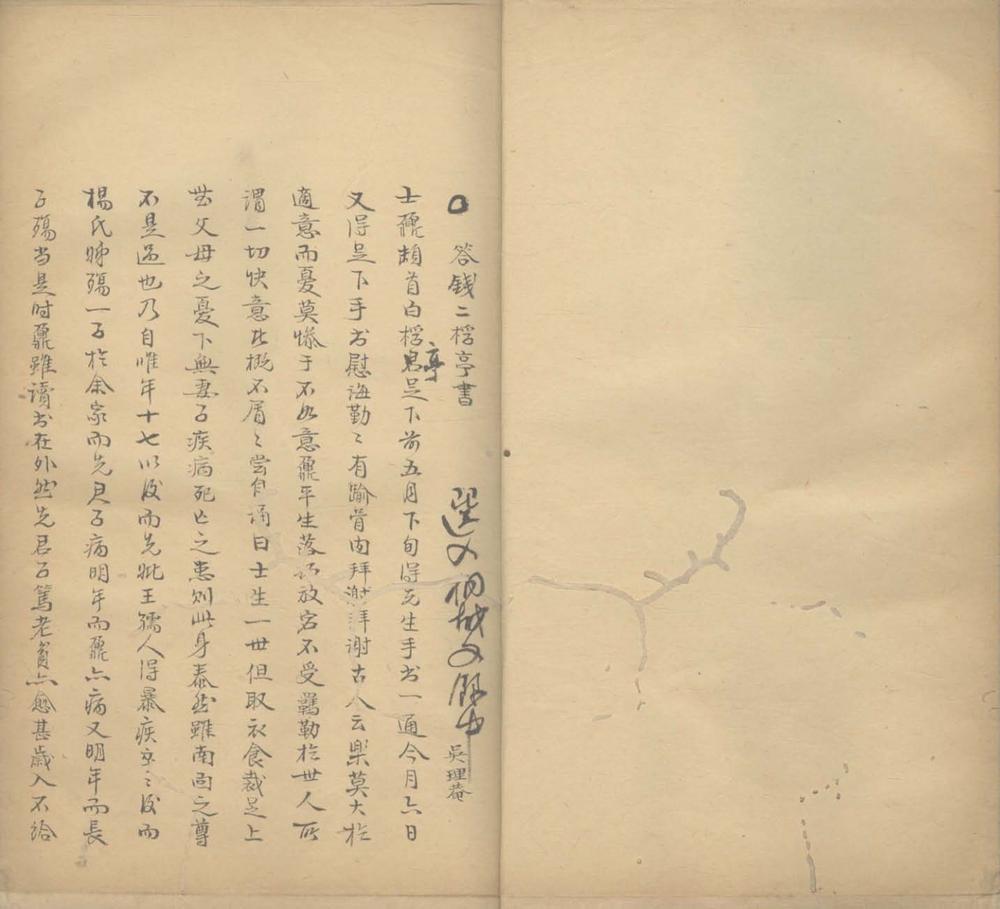 答錢二桴亭書 選入桐城文錄中 吳理菴
士鼐頓首白桴亭足下前五月下旬得先生手書一通今月六日
又得足下手書慰誨勤〻有踰骨肉拜謝拜謝古人云樂莫大於
適意而憂莫慘于不如意鼐平生落拓放宕不受羈勒於世人所
謂一切快意比概不屑〻嘗自誦曰士生一世但取衣食裁足上
無父母之憂下無妻子疾病死亡之患則此身泰然雖南面之尊
不是過也乃自惟年十七以後而先妣王孺人得暴疾卒〻後而
楊氏姊殤一子於余家而先君子病明年而鼐亦病又明年而長
子殤當是時鼐雖讀書在外然先君子篤老貧亦愈甚歲入不給